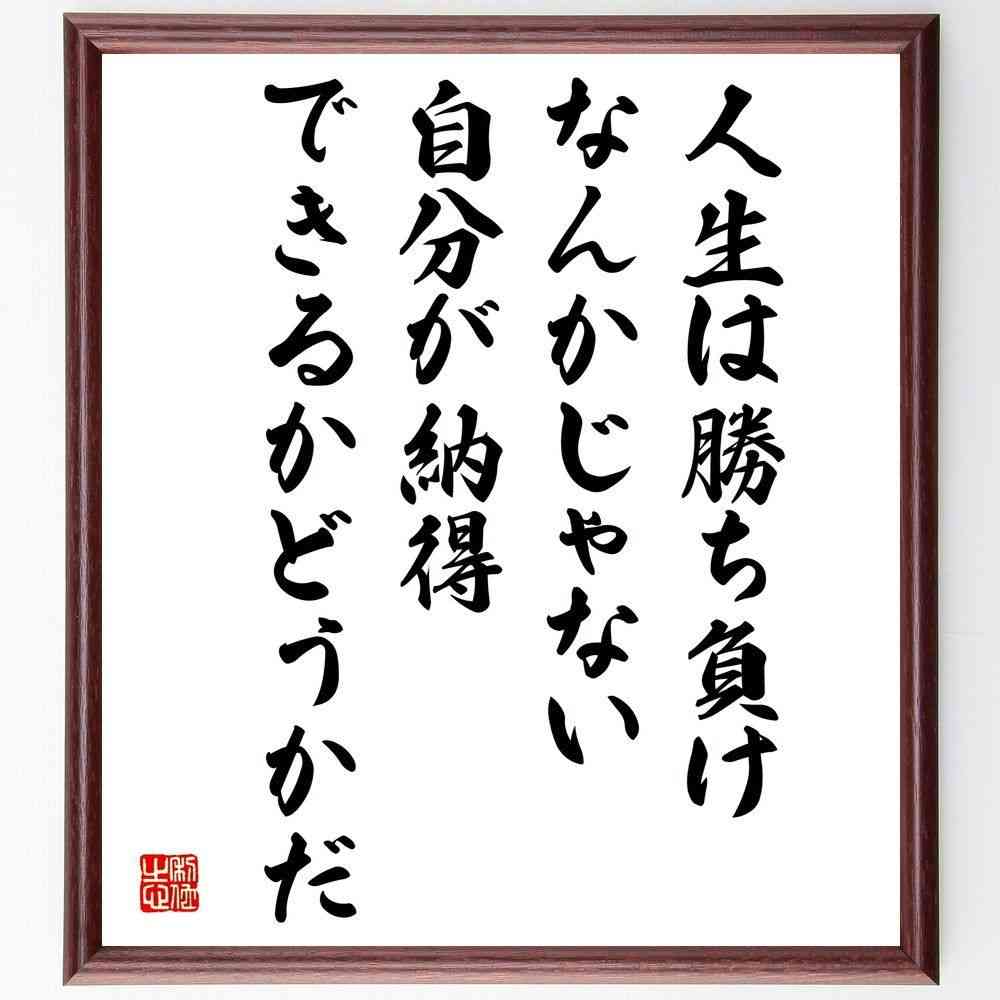 人生は勝ち負け
なんかじゃない
自分が納得
できるかどうかだ